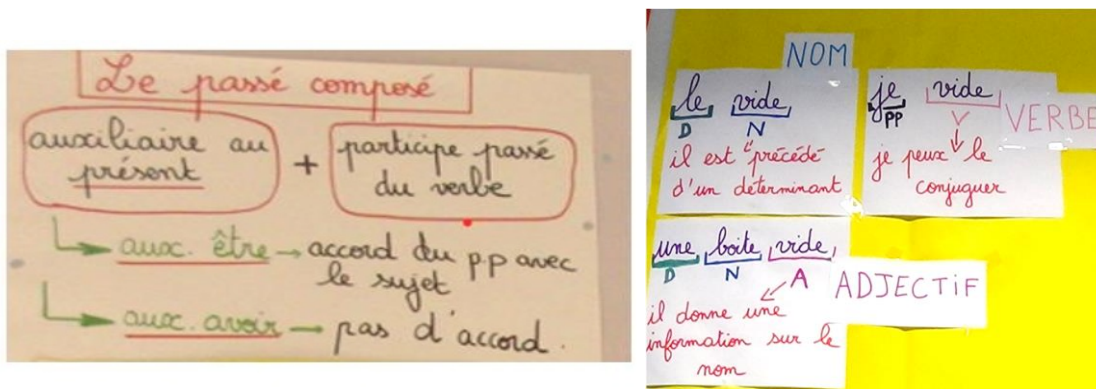 Le passé composé
auxiliaire au
présent
+
participe passé
du verbe
aux. être → accord du p.p avec
le sujet
aux. avoir → pas d'accord.
NOM
le vide
D N
il est précédé
d'un déterminant
je vide
PP V
VERBE
je peux le
conjuguer
une boite vide
D N A
ADJECTIF
il donne une
information sur le
nom